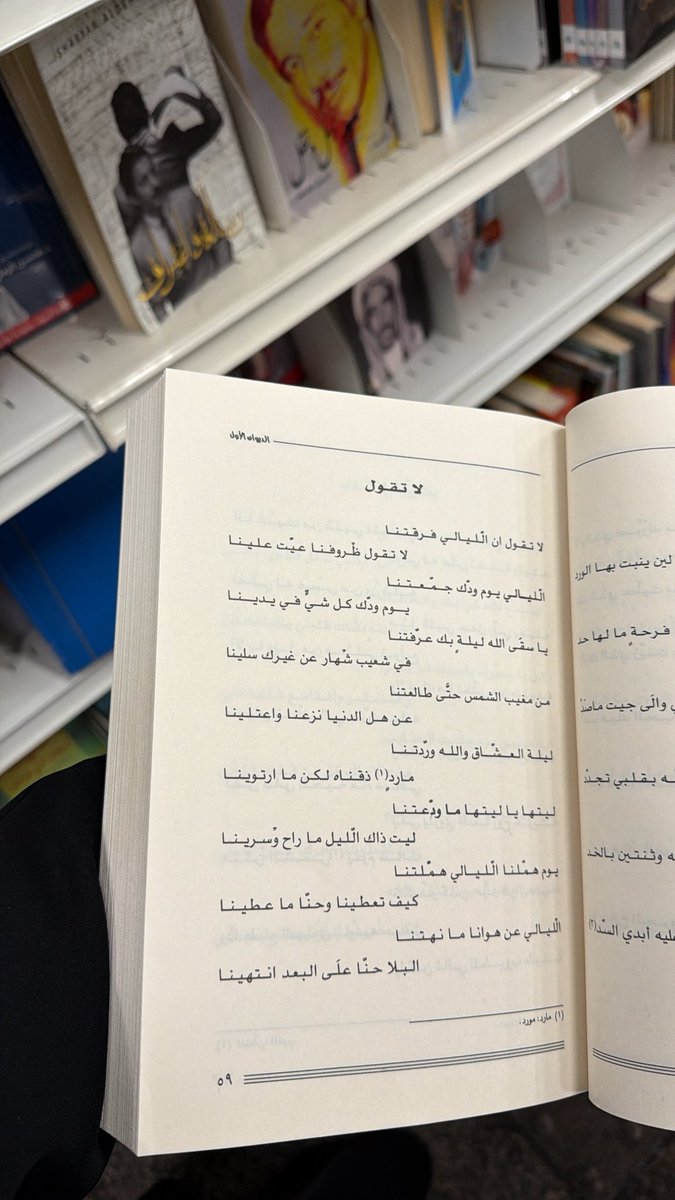 الديوان الأول
لا تقول
لا تقول ان الّليالي فرقتنا
لا تقول ظْروفنا عيّت علينا
الّليالي يوم ودّك جمّعتنا
يوم ودّك كل شيٍّ في يدينا
يا سقَى الله ليلةٍ بك عرّفتنا
في شعيب شْهار عن غيرك سلينا
من مغيب الشمس حتَّى طالعتنا
عن هل الدنيا نزعنا واعتلينا
ليلة العشّاق والله وردّتنا
ماردٍ(١) ذقناه لكن ما ارتوينا
ليتها يا ليتها ما ودّعتنا
ليت ذاك الّليل ما راح وْسرينا
يوم همّلنا الّليالي همّلتنا
كيف تعطينا وحنّا ما عطينا
الّليالي عن هوانا ما نهتنا
البلا حنّا علَى البعد انتهينا
(١) مارد: مورد.
٥٩
لين ينبت بها الورد
فرحةٍ ما لها حد
والَى جيت
بقلبي تجدّد
وثنتين بالخد
عليه أبدي السّد(٢)